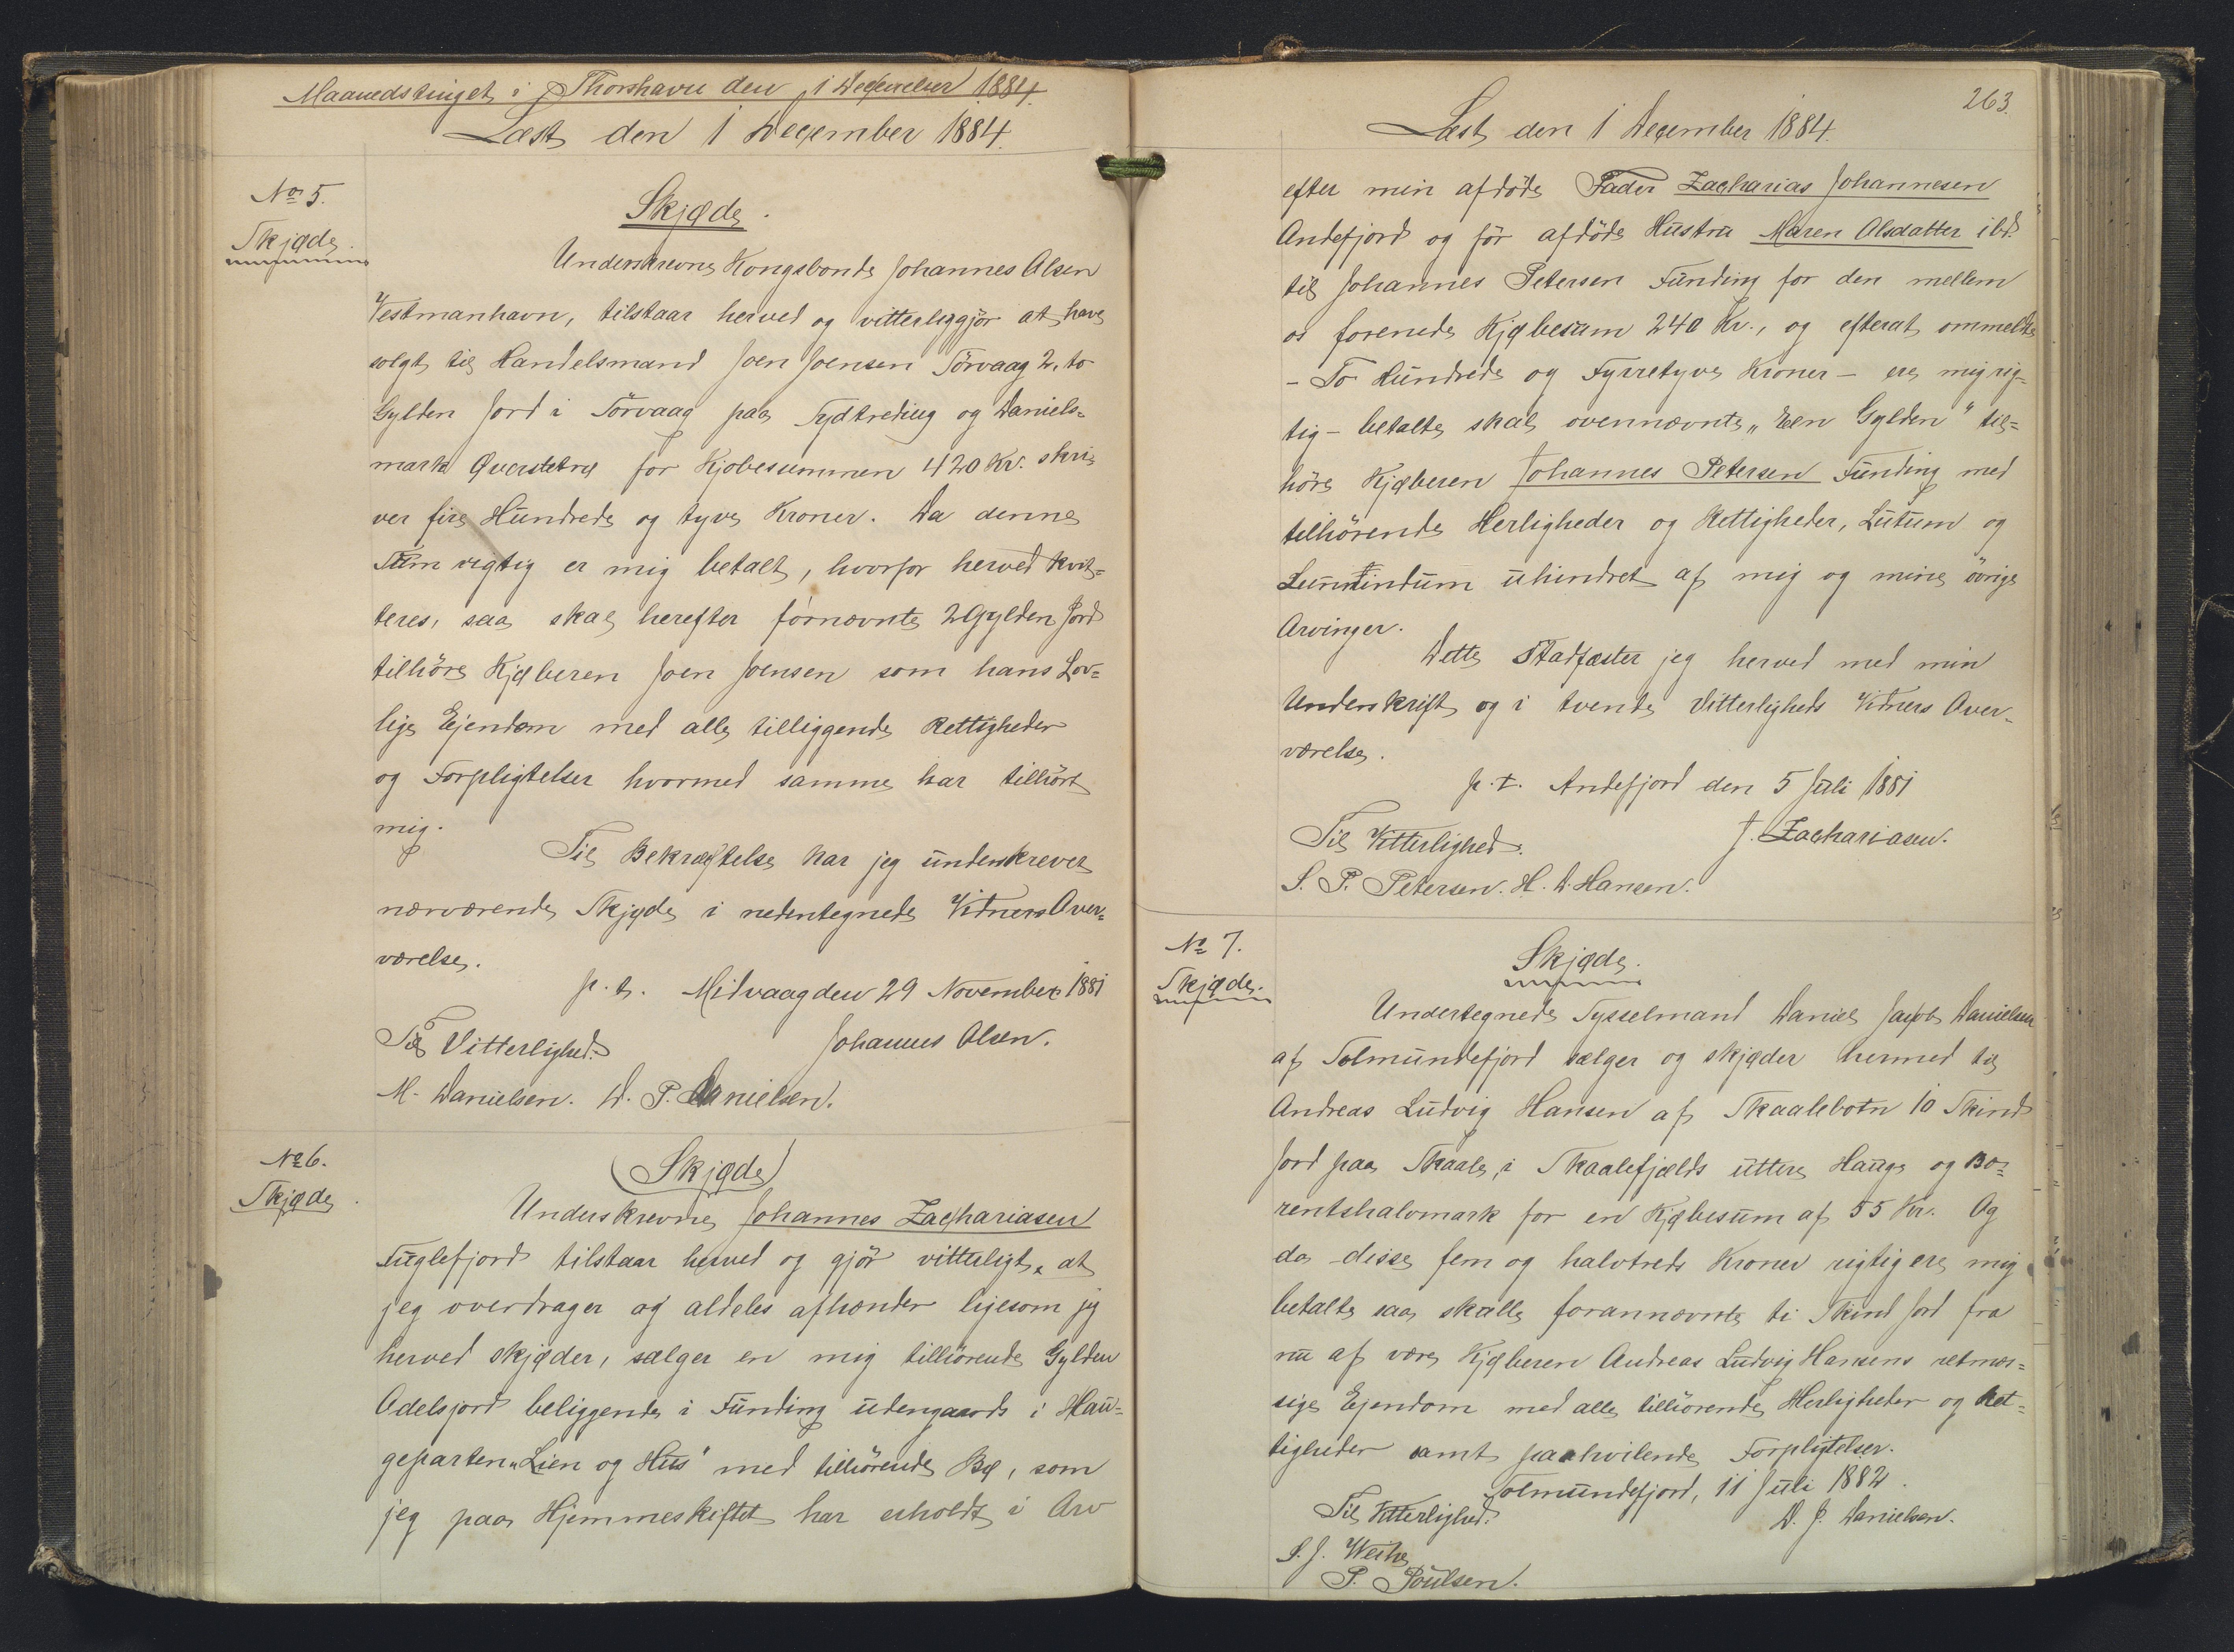 Maanedstinget i Thorshavn den 1 December 1884.
Læst den 1 December 1884.
No 5.
Skjøde.
Skjøde.
Underskrevne Kongsbonde Johannes Olsen
Vestmanhavn, tilstaar herved og vitterliggjør at have
solgt til Handelsmand Joen Joensen Sörvaag 2, to
Gylden Jord i Sörvaag paa Sydtreding og Daniels=
mark for Kjøbesummen 420 Kr. skri=
ver fire Hundrede og tyve Kroner. Da denne
Sum rigtig er mig betalt, hvorfor herved kvit=
teres, saa skal herefter fornævnte 2 Gylden Jord
tilhöre Kjøberen Joen Joensen som hans Lov=
lige Ejendom med alle tilliggende Rettigheder
og Forpligtelser hvormed samme har tilhört
mig.
Til Bekræftelse har jeg underskrevet
nærværende Skjøde i nedentegnede Vidners Over=
værelse.
p. t. Midvaag den 29 November 1881
Til Vitterlighed:
Johannes Olsen.
M. Danielsen. D. P. Danielsen.
No 6.
Skjøde
Skjøde
Underskrevne Johannes Zachariasen
Fuglefjord tilstaar herved og gjör vitterligt, at
jeg overdrager og aldeles afhænder ligesom jeg
herved skjøder, sælger en mig tilhörende Gylden
Odelsjord beliggende i Funding udengaards i Hau=
geparten "Lien og Hus" med tilhörende Bø, som
jeg paa Hjemmeskiftet har erholdt i Arv
263.
Læst den 1 December 1884.
efter min afdöde Fader Zacharias Johannesen
Andefjord og för afdöde Hustru Maren Olsdatter ibd.
til Johannes Petersen Funding for den mellem
os forenede Kjøbesum 240 Kr., og efterat ommeldte
- To Hundrede og Fyrretyve Kroner - ere mig rig=
tig - betalte skal ovennævnte "Een Gylden" til=
höre Kjøberen Johannes Petersen Funding med
tilhörende Herligheder og Rettigheder, Lutum og
Lunnindum uhindret af mig og mine övrige
Arvinger.
Dette Stadfæster jeg herved med min
Underskrift og i tvende Vitterligheds Vidners Over=
værelse.
p. t. Andefjord den 5 Juli 1881
Til Vitterlighed:
J. Zachariasen.
S. P. Petersen. H. D. Hansen.
No 7.
Skjøde.
Skjøde.
Undertegnede Sysselmand Daniel Jacob Danielsen
af Solmundefjord sælger og skjøder hermed til
Andreas Ludvig Hansen af Skaalebotn 10 Skind
Jord paa Skaale, i Skaalefjælds uttere Hauge og Bo=
rentshalvmark for en Kjøbesum af 55 Kr. Og
da disse fem og halvtreds Kroner rigtig ere mig
betalte saa skulle forannævnte ti Skind Jord fra
nu af være Kjøberen Andreas Ludvig Hansens retmæs=
sige Ejendom med alle tilhörende Herligheder og Ret=
tigheder samt paahvilende Forpligtelser.
Solmundefjord, 11 Juli 1882.
Til Vitterlighed:
D. J. Danielsen.
S. J. Weihe
P. Poulsen.